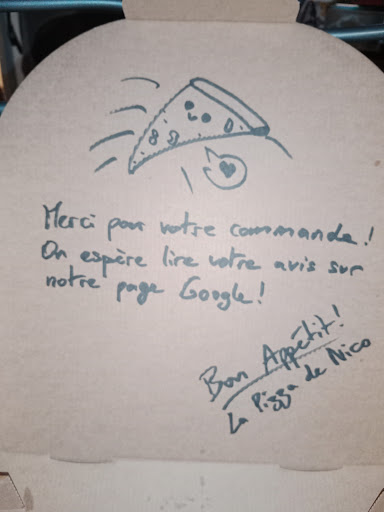 Merci pour votre commande!
On espère lire votre avis sur
notre page Google!
Bon Appétit!
La Pizza de Nico